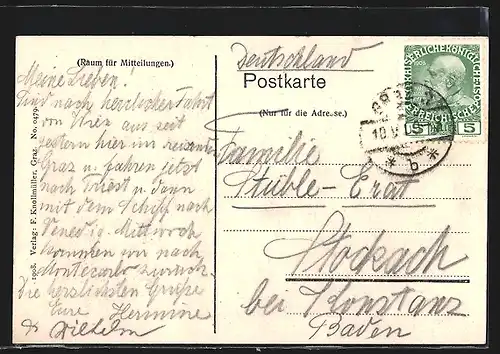 (Raum für Mitteilungen.)
Meine Lieben!
Sind nach herrlicher Fahrt
von Wien aus seit
gestern hier im reizenden
Graz u. fahren jetzt
nach Triest u. dann
mit dem Schiff nach
Venedig. Mittwoch
kommen wir nach
Montecarlo zurück.
Die herzlichsten Grüße
Eure Hermine
Wilhelm
1908. Verlag: F. Knollmüller, Graz. No. 0479
Deutschland
Postkarte
(Nur für die Adresse.)
Familie
Stüble-Erat
Stockach
bei Konstanz
Baden
KAISERLICHE KÖNIGLICHE
1908
5 5
GRAZ
10 V
* b *